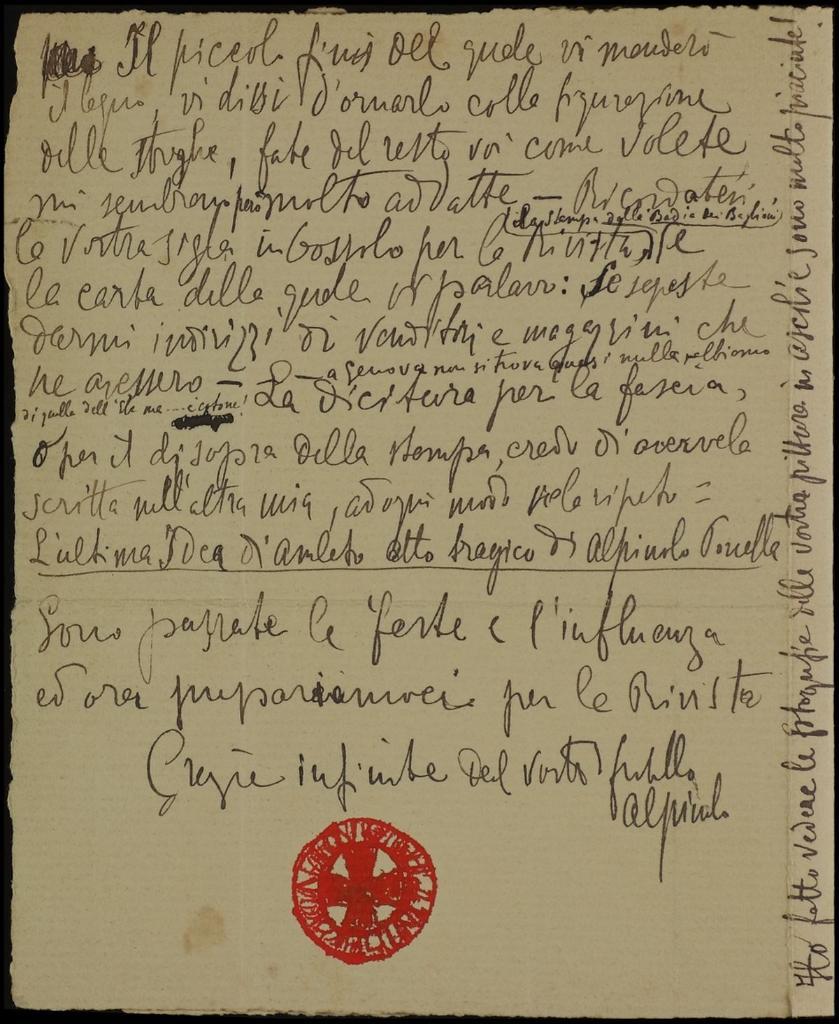 Il piccolo finis del quale vi manderò
il legno, vi dissi d'ornarlo colla figurazione
delle streghe, fate del resto voi come volete
mi sembrano però molto addatte — Ricordatevi
(la stampa della Badia dei Baglioni)
la vostra sigla in bossolo per la Rivista, e
la carta della quale vi parlavo: se sapeste
darmi indirizzi di venditori e magazzini che
ne avessero — a Genova non si trova quasi nulla
di quella dell'
La dicitura per la fascia,
o per il disopra della stampa, credo di avervela
scritta nell'altra mia, ad ogni modo ve la ripeto =
L'ultima Idea di Amleto atto tragico di Alpinolo
Sono passate le feste e l'influenza
ed ora prepariamoci per la Rivista
Grazie infinite dal vostro fratello
Alpinolo
Ho fatto vedere le fotografie delle vostre pitture m aschie sono molto piaciute!